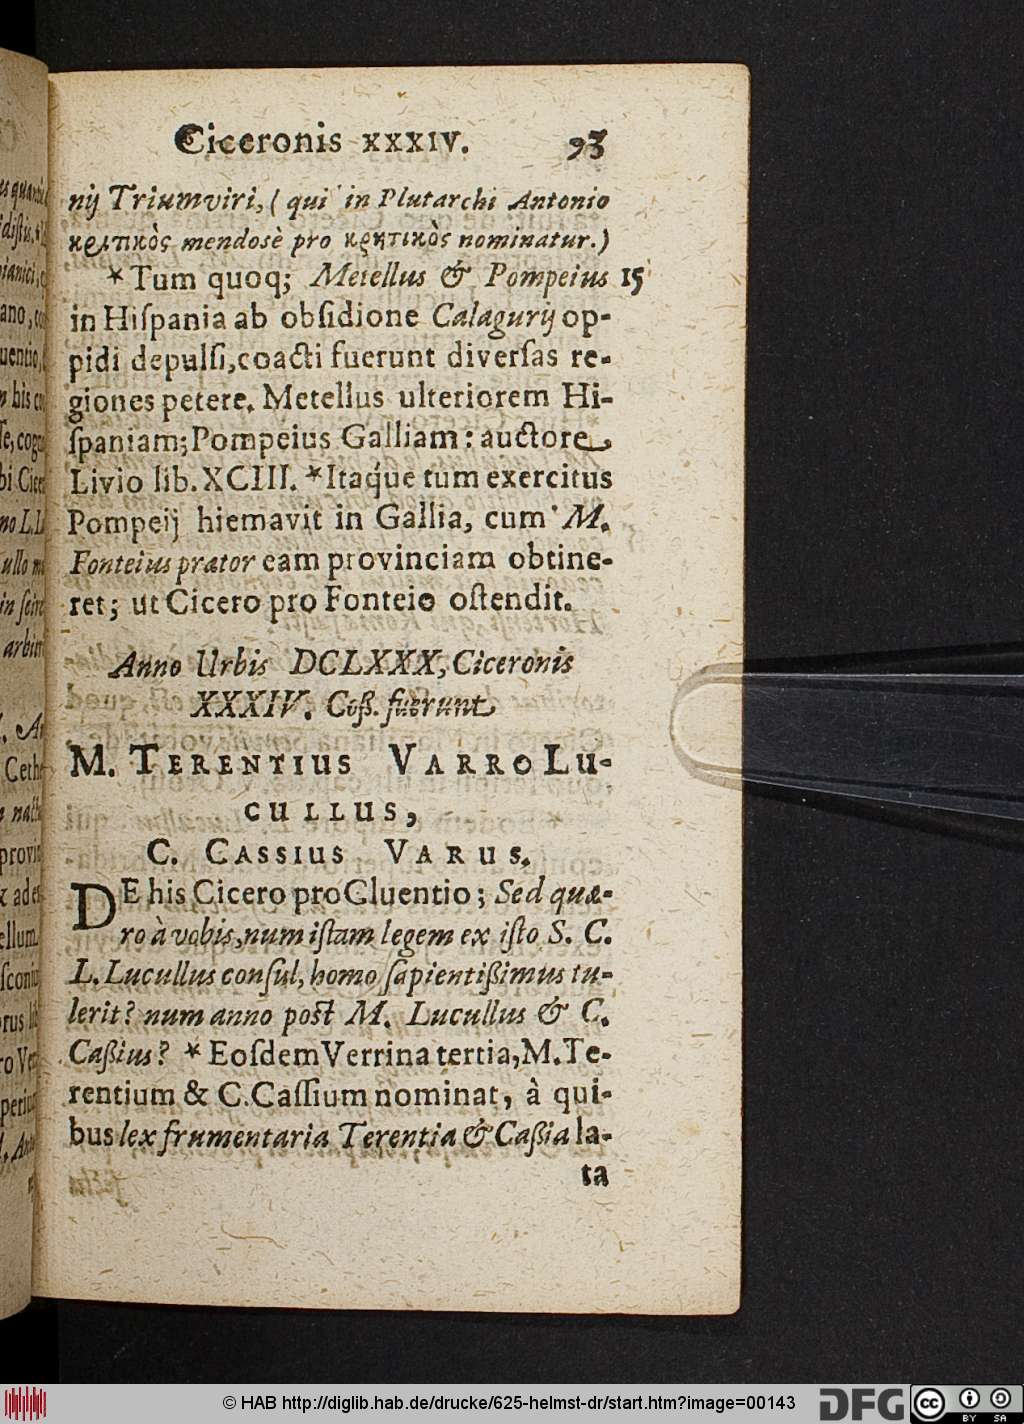 Ciceronis XXXIV. 93
nij Triumviri, ( qui in Plutarchi Antonio
κριτικὸς mendosè pro κρητικὸς nominatur.)
* Tum quoq; Metellus & Pompeius 15
in Hiſpania ab obſidione Calagurij op-
pidi depulſi, coacti fuerunt diverſas re-
giones petere. Metellus ulteriorem Hi-
ſpaniam; Pompeius Galliam: auctore
Livio lib. XCIII. * Itaque tum exercitus
Pompeij hiemavit in Gallia, cum M.
Fonteius prator eam provinciam obtine-
ret; ut Cicero pro Fonteio oſtendit.
Anno Urbis DCLXXX, Ciceronis
XXXIV. Coß. fuerunt
M. TERENTIUS VARRO LU-
CULLUS,
C. CASSIUS VARUS.
DE his Cicero pro Cluentio; Sed quæ-
ro à vobis, num iſtam legem ex iſto S. C.
L. Lucullus conſul, homo ſapientißimus tu-
lerit? num anno poſt M. Lucullus & C.
Caßius? * Eoſdem Verrina tertia, M. Te-
rentium & C. Caſſium nominat, à qui-
bus lex frumentaria Terentia & Caßia la-
ta
© HAB http://diglib.hab.de/drucke/625-helmst-dr/start.htm?image=00143
DFG
cc BY SA